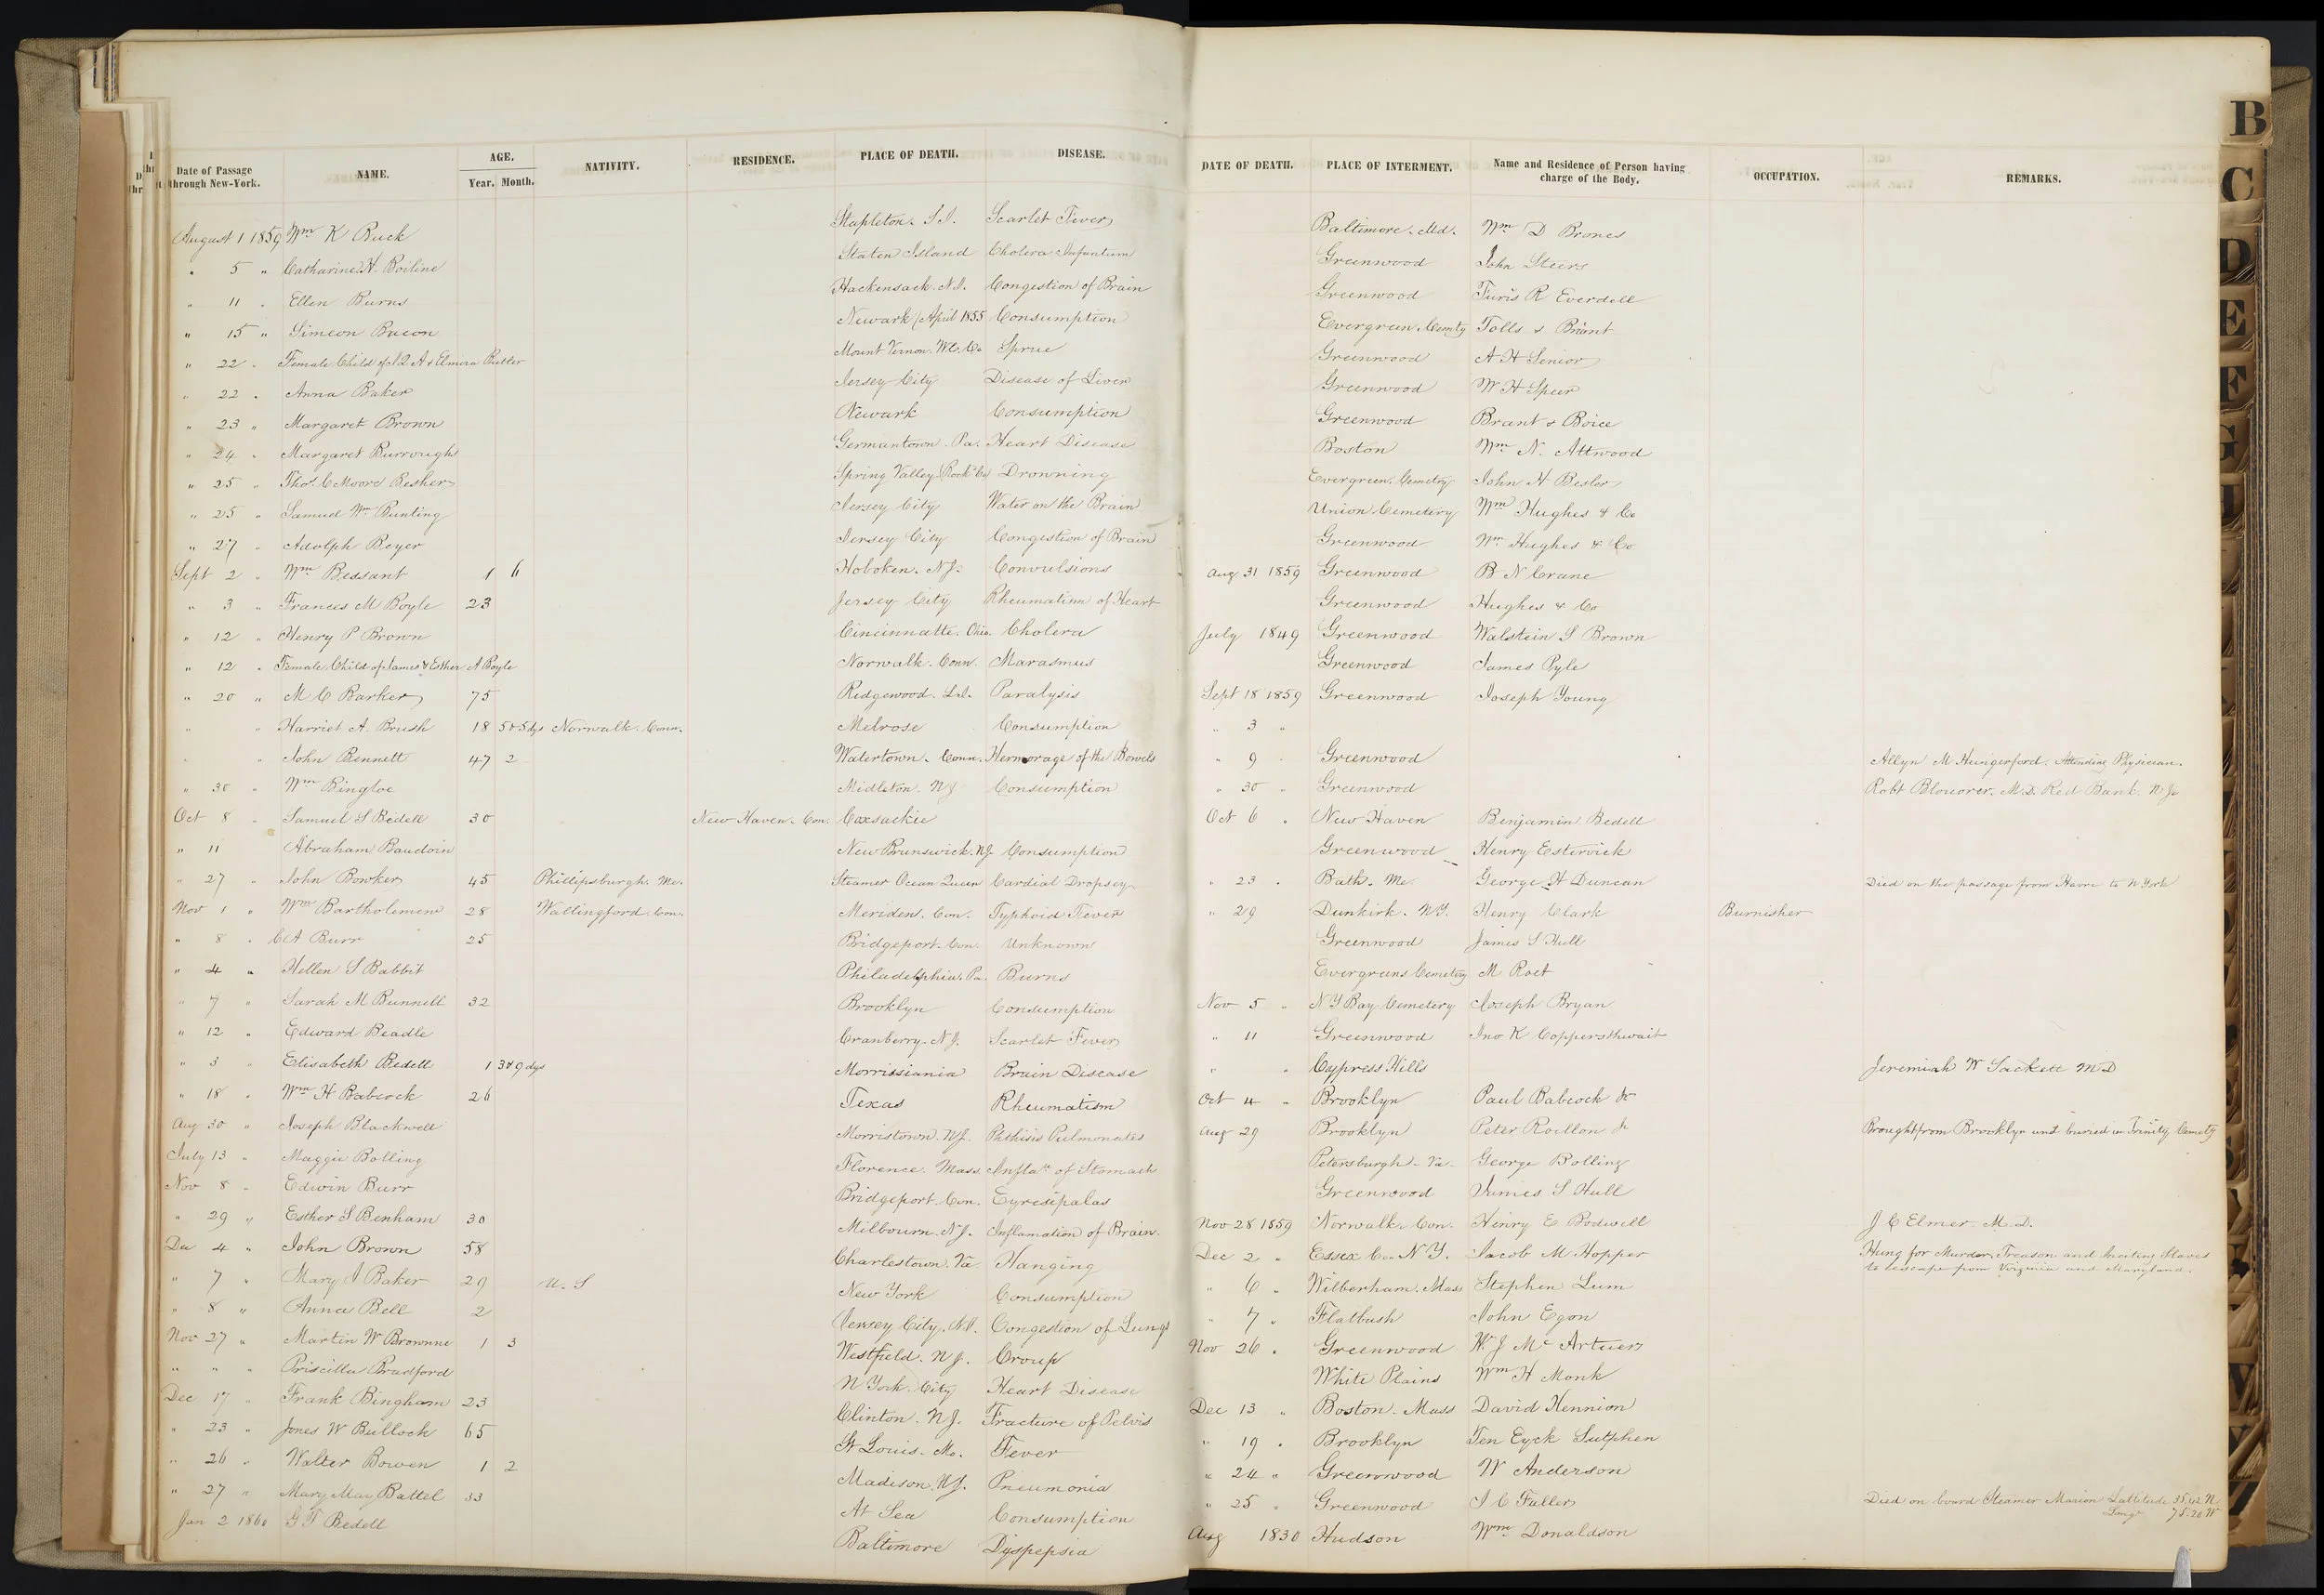 Date of Passage through New-York. NAME. AGE. Year. Month. NATIVITY. RESIDENCE. PLACE OF DEATH. DISEASE. DATE OF DEATH. PLACE OF INTERMENT. Name and Residence of Person having charge of the Body. OCCUPATION. REMARKS.
August 1 1859 Wm K Buck Stapleton. S.I. Scarlet Fever Baltimore. Md. Wm D Brones
" 5 " Catharine H. Boiline Staten Island Cholera Infantum Greenwood John Steers
" 11 " Ellen Burns Hackensack. N.J. Congestion of Brain Greenwood R Everdell
" 15 " Simeon Bacon Newark (April 1855 Consumption Evergreen. Cemty Tolls & Brant
" 22 " Female Child of A & Elmira Butler Mount Vernon. W.C. Co Sprue Greenwood A H Senior
" 22 " Anna Baker Jersey City Disease of Liver Greenwood W H Speer
" 23 " Margaret Brown Newark Consumption Greenwood Brant & Boice
" 24 " Margaret Burroughs Germantown. Pa. Heart Disease Boston Wm N. Attwood
" 25 " Thos C Moore Besher Spring Valley Rockd Co Drowning Evergreen. Cemetry John H Besler
" 25 " Samuel Wm Bunting Jersey City Water on the Brain Union Cemetery Wm Hughes & Co
" 27 " Adolph Beyer Jersey City Congestion of Brain Greenwood Wm Hughes & Co
Sept 2 " Wm Bessant 1 6 Hoboken. N.J. Convulsions Aug 31 1859 Greenwood B N Crane
" 3 " Frances M Boyle 23 Jersey City Rheumatism of Heart Greenwood Hughes & Co
" 12 " Henry P Brown Cincinnatte. Ohio. Cholera July 1849 Greenwood Walstein S Brown
" 12 " Female Child of James & Esther A Boyle Norwalk. Conn. Marasmus Greenwood James Pyle
" 20 " M C Barker 75 Ridgewood. L.I. Paralysis Sept 18 1859 Greenwood Joseph Young
" " Harriet A. Brush 18 5 & 5 dys Norwalk. Conn. Melrose Consumption " 3 "
" " John Bennett 47 2 Watertown. Conn. Hermorage of the Bowels " 9 " Greenwood Allyn M Hungerford. Attending Physician.
" 30 " Wm Bingloe Midleton. N.J. Consumption " 30 " Greenwood Robt M.D. Red Bank. N.J.
Oct 8 " Samuel S Bedell 30 New Haven. Con. Coxsackie Oct 6 " New Haven Benjamin Bedell
" 11 Abraham Baudoin New Brunswick. N.J. Consumption Greenwood Henry Estervick
" 27 " John Bowker 45 Phillipsburgh. Me. Steamer Ocean Queen Cardial Dropsey " 23 " Bath. Me. George H Duncan Died on the passage from Havre to N York
Nov 1 " Wm Bartholemew 28 Wallingford. Con. Meriden. Con. Typhoid Fever " 29 " Dunkirk. N.Y. Henry Clark Burnisher
" 8 " C A Burr 25 Bridgeport. Con. Unknown Greenwood James S Hull
" 4 " Hellen S Babbit Philadelphia. Pa. Burns Evergreens Cemetery M Roet
" 7 " Sarah M Bunnell 32 Brooklyn Consumption Nov 5 " N Y Bay Cemetery Joseph Bryan
" 12 " Edward Beadle Cranberry. N.J. Scarlet Fever " 11 Greenwood Jno K Coppersthwait
" 3 " Elisabeth Bedell 1 3 & 9 dys Morrissiania Brain Disease " " Cypress Hills Jeremiah W Sackett M D
" 18 " Wm H Babcock 26 Texas Rheumatism Oct 4 " Brooklyn Paul Babcock Jr
Aug 30 " Joseph Blackwell Morristown. N.J. Phthisis Pulmonales Aug 29 Brooklyn Peter Roillon Jr Brought from Brooklyn and buried in Trinity Cemety
July 13 " Maggie Bolling Florence. Mass. Infla of Stomach Petersburgh. Va. George Bolling
Nov 8 " Edwin Burr Bridgeport. Con. Eyresipalas Greenwood James S Hull
" 29 " Esther S Benham 30 Milbourn. N.J. Inflamation of Brain. Nov 28 1859 Norwalk. Con. Henry E Bodwell J C Elmer M.D.
Dec 4 " John Brown 58 Charlestown. Va. Hanging Dec 2 " Essex Co. N.Y. Jacob M Hopper Hung for Murder, Treason and Inciting Slaves
to escape from Virginia and Maryland.
" 7 " Mary J Baker 29 U.S New York Consumption " 6 " Wilberham. Mass Stephen Lum
" 8 " Anna Bell 2 Jersey City. N.J. Congestion of Lungs " 7 " Flatbush John Egon
Nov 27 " Martin W Brownne 1 3 Westfield. N.J. Croup Nov 26 " Greenwood W. J Mc Artuer
" " " Priscilla Bradford N York. City Heart Disease White Plains Wm H Monk
Dec 17 " Frank Bingham 23 Clinton. N.J. Fracture of Pelvis Dec 13 " Boston. Mass David Hennion
" 23 " Jones W Bullock 65 St Louis. Mo. Fever " 19 " Brooklyn Ten Eyck Sutphen
" 26 " Walter Bowen 1 2 Madison. N.J. Pneumonia " 24 " Greenwood W Anderson
" 27 " Mary May Battel 33 At Sea Consumption " 25 " Greenwood J C Fuller Died on board Steamer Marion Lattitude 35,42 N
Longe 75.20 W
Jan 2 1860 G T Bedell Baltimore Dyspepsia Aug 1830 Hudson Wm Donaldson
B
C
D
E
F
G
H